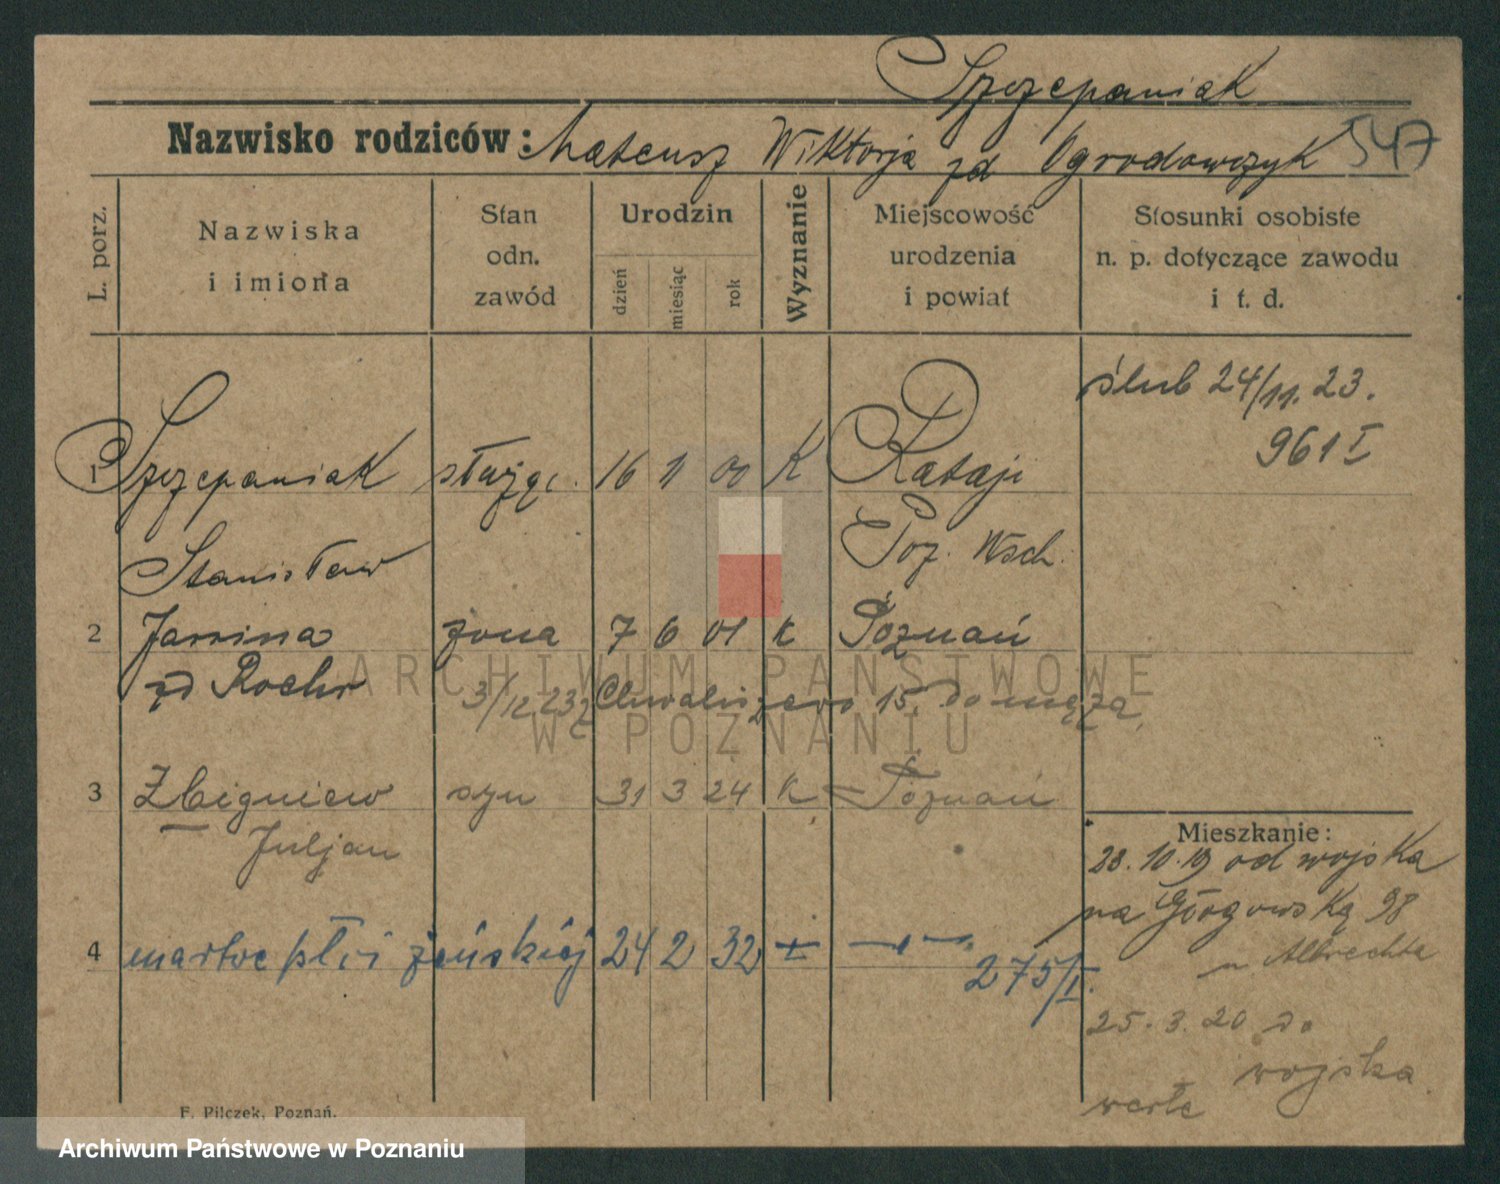 Szczepaniak
Nazwisko rodziców: Mateusz Wiktorja zd Ogrodowczyk 547
L. porz.
Nazwiska
i imiona
Stan
odn.
zawód
Urodzin
dzień
miesiąc
rok
Wyznanie
Miejscowość
urodzenia
i powiat
Stosunki osobiste
n. p. dotyczące zawodu
i t. d.
ślub 24/11. 23.
961 I
1 Szczepaniak służąc. 16 11 00 K Rataje
Stanisław Poz. Wsch.
2 Janina żona 7 6 01 K Poznań
zd Roehr 3/12 23 z Chwaliszewo 15. do męża,
3 Zbigniew syn 31 3 24 K Poznań
Juljan
4 martwe płci żeńskiej 24 2 32
275/I.
Mieszkanie:
28. 10. 19 od wojska
na Głogowską 98
u Albrechta
25. 3. 20 do
wojska
F. Pilczek, Poznań.
ARCHIWUM PAŃSTWOWE
W POZNANIU
Archiwum Państwowe w Poznaniu